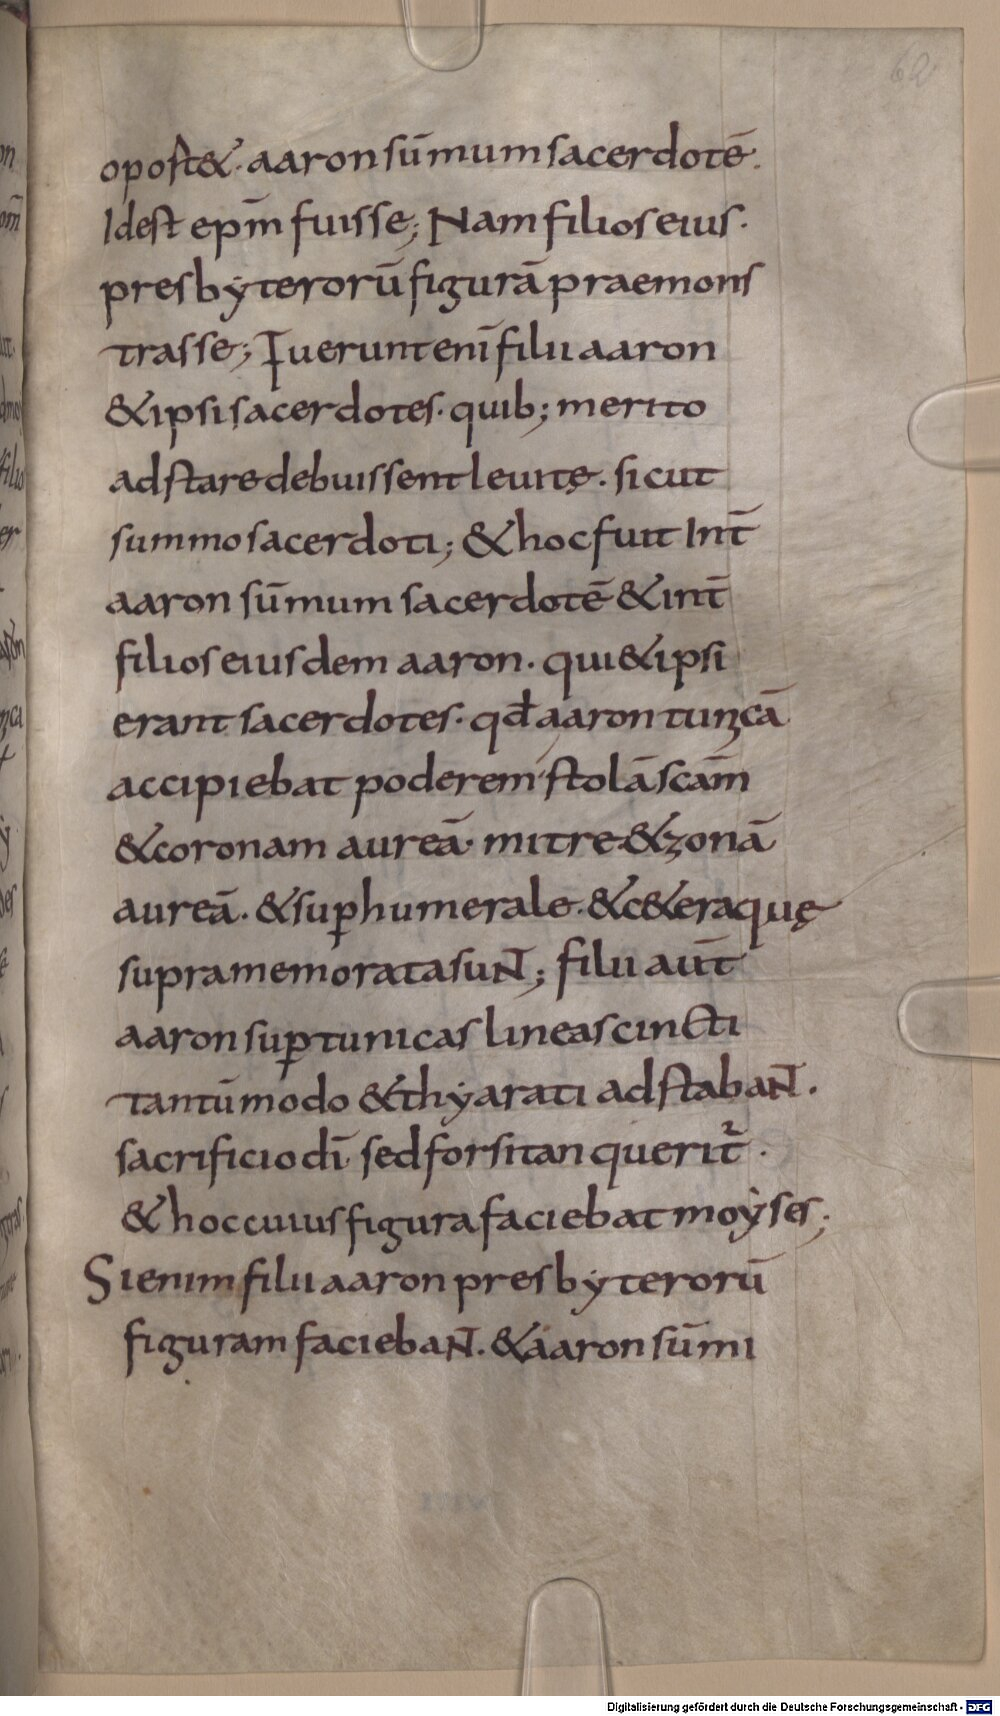 62
oport&. aaron sūmum sacerdotē.
Idest epm̄ fuisse; Nam filios eius.
presbẏterorū figurā praemons
trasse; Fuerunt enī filii aaron
& ipsi sacerdotes. quib; merito
adstare debuissent leuitę. sicut
summo sacerdoti; & hoc fuit Int̄
aaron sūmum sacerdotē & int̄
filios eiusdem aaron. qui & ipsi
erant sacerdotes. qđ aaron tunicā
accipiebat poderem stolā scām
& coronam aureā. mitre & zonā
aureā. & suꝑhumerale. & c&eraquę
supramemorata sunt; filii aūt
aaron suꝑ tunicas lineas cincti
tantūmodo & thẏarati adstabant.
sacrificio dī sed forsitan querit᷑.
& hoc cuius figura faciebat moẏses;
Si enim filii aaron presbẏterorū
figuram faciebant. & aaron sūmi
Digitalisierung gefördert durch die Deutsche Forschungsgemeinschaft - DFG